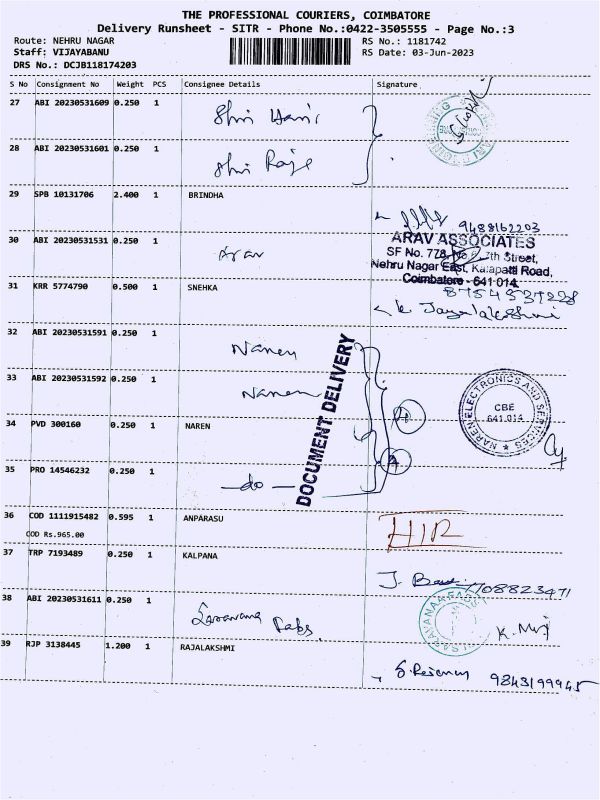 THE PROFESSIONAL COURIERS, COIMBATORE
Delivery Runsheet - SITR - Phone No.:0422-3505555 - Page No.:3
Route: NEHRU NAGAR RS No.: 1181742
Staff: VIJAYABANU RS Date: 03-Jun-2023
DRS No.: DCJB118174203
S No Consignment No Weight PCS Consignee Details Signature
27 ABI 20230531609 0.250 1 Shri Hari
28 ABI 20230531601 0.250 1 Shri Raje
29 SPB 10131706 2.400 1 BRINDHA
9488162203
30 ABI 20230531531 0.250 1 Arav
ARAV ASSOCIATES
SF No. 778, 7th Street,
Nehru Nagar East, Kalapatti Road,
Coimbatore - 641 014.
31 KRR 5774790 0.500 1 SNEHKA
8754537228
K Jayalakshmi
32 ABI 20230531591 0.250 1 Naren
33 ABI 20230531592 0.250 1 Naren
DOCUMENT DELIVERY
NAREN ELECTRONICS AND SERVICES
CBE
641 014
34 PVD 300160 0.250 1 NAREN
35 PRO 14546232 0.250 1 -do-
36 COD 1111915482 0.595 1 ANPARASU
COD Rs.965.00
37 TRP 7193489 0.250 1 KALPANA
38 ABI 20230531611 0.250 1 Saravana Fabs
39 RJP 3138445 1.200 1 RAJALAKSHMI
9843199945